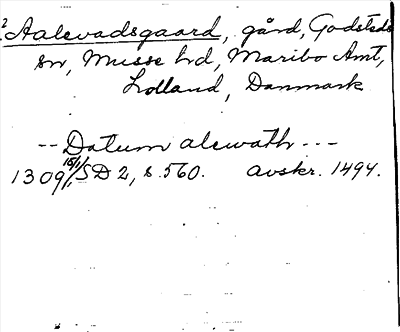 2 Aalevadsgaard, gård, Godsteds
sn, Musse hd, Maribo Amt,
Lolland, Danmark
-- Datum alewath ---
1309 16/1, SD 2, s. 560. avskr. 1494.